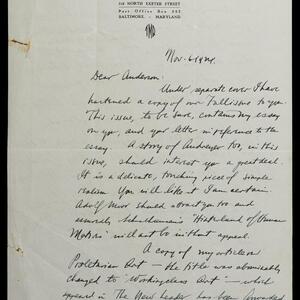 110 NORTH EXETER STREET
Post Office Box 582
BALTIMORE - MARYLAND
Nov. 6 1924.
Dear Anderson:
Under separate cover I have
hastened a copy of our Fall issue to you.
This issue, to be sure, contains my essay
on you, and your letter in reference to the
essay. A story of Andreyev too, in this
issue, should interest you a great deal.
It is a delicate, touching piece of simple
realism. You will like it I am certain.
Adolf should attract you too and
of Human
Motors" will not be without appeal.
A copy of my article on
Proletarian Art - the title was abominably
changed to "Working Class Art" - which
appeared in The New Leader has been forwarded